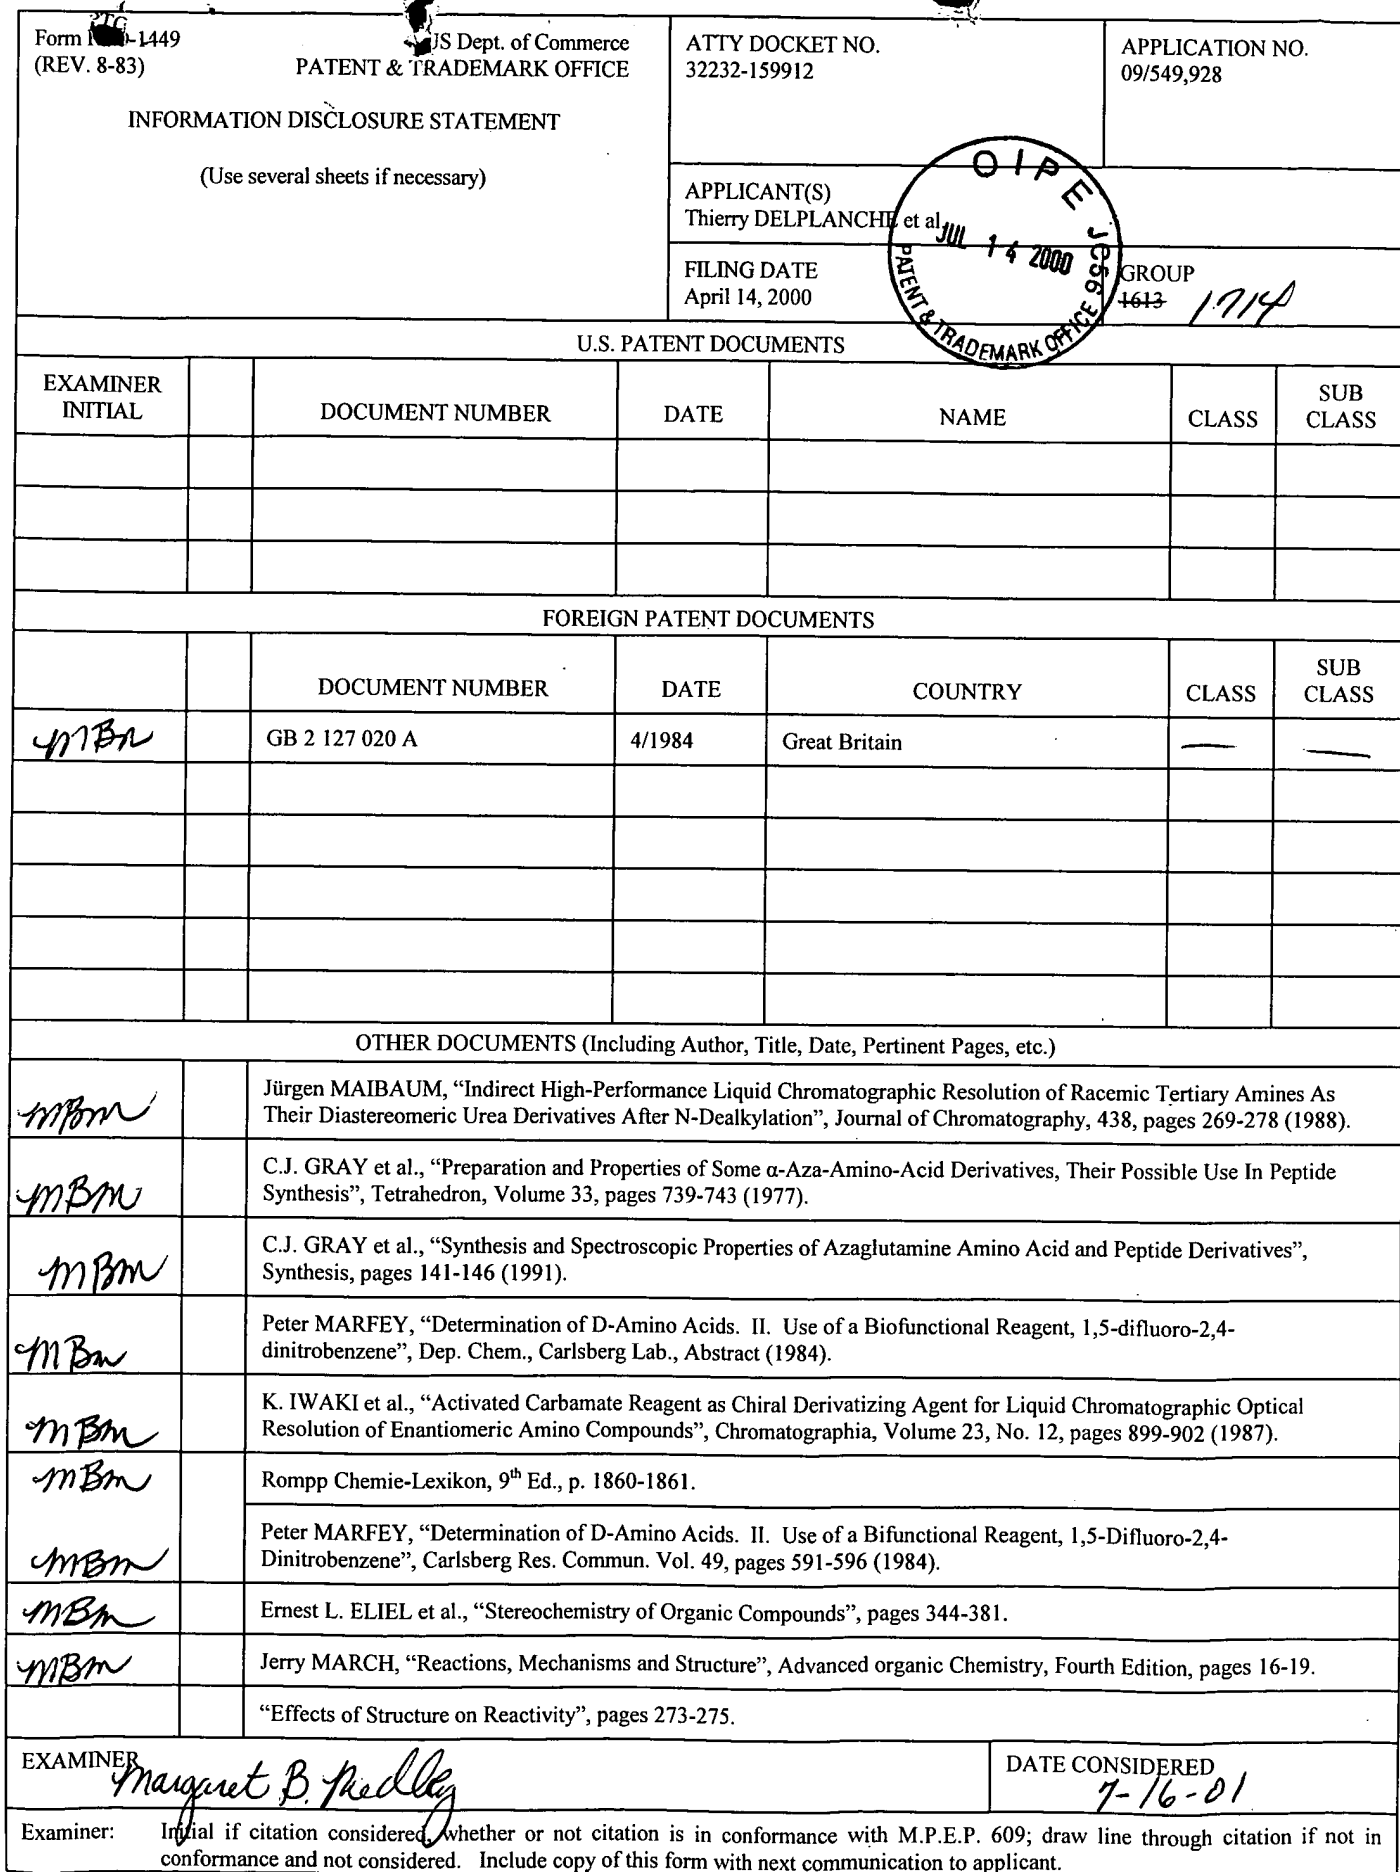 PTG
Form -1449
US Dept. of Commerce
(REV. 8-83)
PATENT & TRADEMARK OFFICE
INFORMATION DISCLOSURE STATEMENT
(Use several sheets if necessary)
ATTY DOCKET NO.
32232-159912
APPLICATION NO.
09/549,928
APPLICANT(S)
Thierry DELPLANCHE et al.
FILING DATE
April 14, 2000
GROUP
1613 1714
OIPE JC56
JUL 14 2000
PATENT & TRADEMARK OFFICE
U.S. PATENT DOCUMENTS
EXAMINER INITIAL
DOCUMENT NUMBER
DATE
NAME
CLASS
SUB CLASS
FOREIGN PATENT DOCUMENTS
DOCUMENT NUMBER
DATE
COUNTRY
CLASS
SUB CLASS
MBM GB 2 127 020 A 4/1984 Great Britain — —
OTHER DOCUMENTS (Including Author, Title, Date, Pertinent Pages, etc.)
MBM
Jürgen MAIBAUM, “Indirect High-Performance Liquid Chromatographic Resolution of Racemic Tertiary Amines As
Their Diastereomeric Urea Derivatives After N-Dealkylation”, Journal of Chromatography, 438, pages 269-278 (1988).
MBM
C.J. GRAY et al., “Preparation and Properties of Some α-Aza-Amino-Acid Derivatives, Their Possible Use In Peptide
Synthesis”, Tetrahedron, Volume 33, pages 739-743 (1977).
MBM
C.J. GRAY et al., “Synthesis and Spectroscopic Properties of Azaglutamine Amino Acid and Peptide Derivatives”,
Synthesis, pages 141-146 (1991).
MBM
Peter MARFEY, “Determination of D-Amino Acids. II. Use of a Biofunctional Reagent, 1,5-difluoro-2,4-
dinitrobenzene”, Dep. Chem., Carlsberg Lab., Abstract (1984).
MBM
K. IWAKI et al., “Activated Carbamate Reagent as Chiral Derivatizing Agent for Liquid Chromatographic Optical
Resolution of Enantiomeric Amino Compounds”, Chromatographia, Volume 23, No. 12, pages 899-902 (1987).
MBM
Rompp Chemie-Lexikon, 9th Ed., p. 1860-1861.
MBM
Peter MARFEY, “Determination of D-Amino Acids. II. Use of a Bifunctional Reagent, 1,5-Difluoro-2,4-
Dinitrobenzene”, Carlsberg Res. Commun. Vol. 49, pages 591-596 (1984).
MBM
Ernest L. ELIEL et al., “Stereochemistry of Organic Compounds”, pages 344-381.
MBM
Jerry MARCH, “Reactions, Mechanisms and Structure”, Advanced organic Chemistry, Fourth Edition, pages 16-19.
“Effects of Structure on Reactivity”, pages 273-275.
EXAMINER
Margaret B. Medley
DATE CONSIDERED
7-16-01
Examiner: Initial if citation considered, whether or not citation is in conformance with M.P.E.P. 609; draw line through citation if not in
conformance and not considered. Include copy of this form with next communication to applicant.